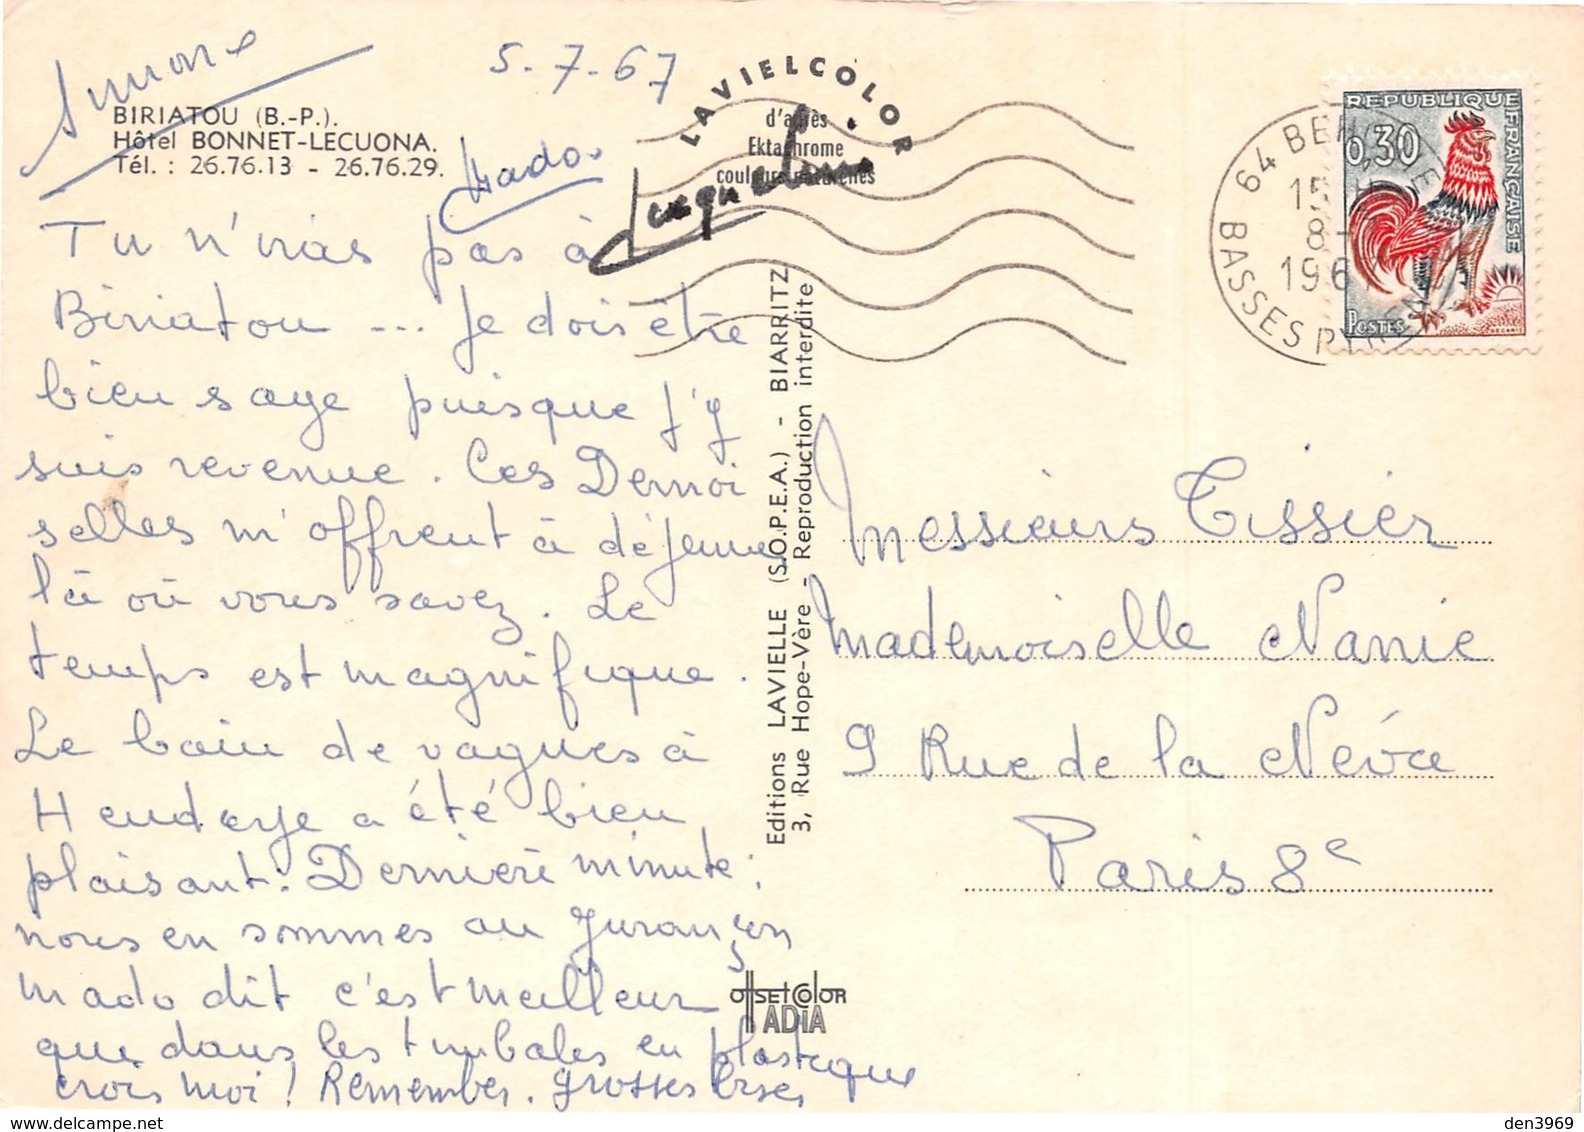 Simone
5-7-67
BIRIATOU (B.-P.).
Hôtel BONNET-LECUONA.
Tél. : 26.76.13 - 26.76.29.
Mado.
Jacqueline
LAVIELCOLOR
d'après
Ektachrome
couleurs naturelles
Tu n'iras pas à
Biriatou ... Je dois être
bien sage puisque j'y
suis revenue. Ces Demoi
selles m'offrent à déjeuner
là où vous savez. Le
temps est magnifique.
Le bain de vagues à
Hendaye a été bien
plaisant. Dernière minute :
nous en sommes au Jurançon
Mado dit c'est meilleur
que dans les timbales en plastique
crois moi ! Remember. grosses bises
Editions LAVIELLE (S.O.P.E.A.) - BIARRITZ
3, Rue Hope-Vère - Reproduction interdite
OffSET COLOR
ADIA
REPUBLIQUE FRANÇAISE
0,30
POSTES
DECARIS
64 BE
15 H
8-
196
BASSES PYR
Messieurs Tissier
Mademoiselle Nanie
9 Rue de la Néva
Paris 8e
den3969